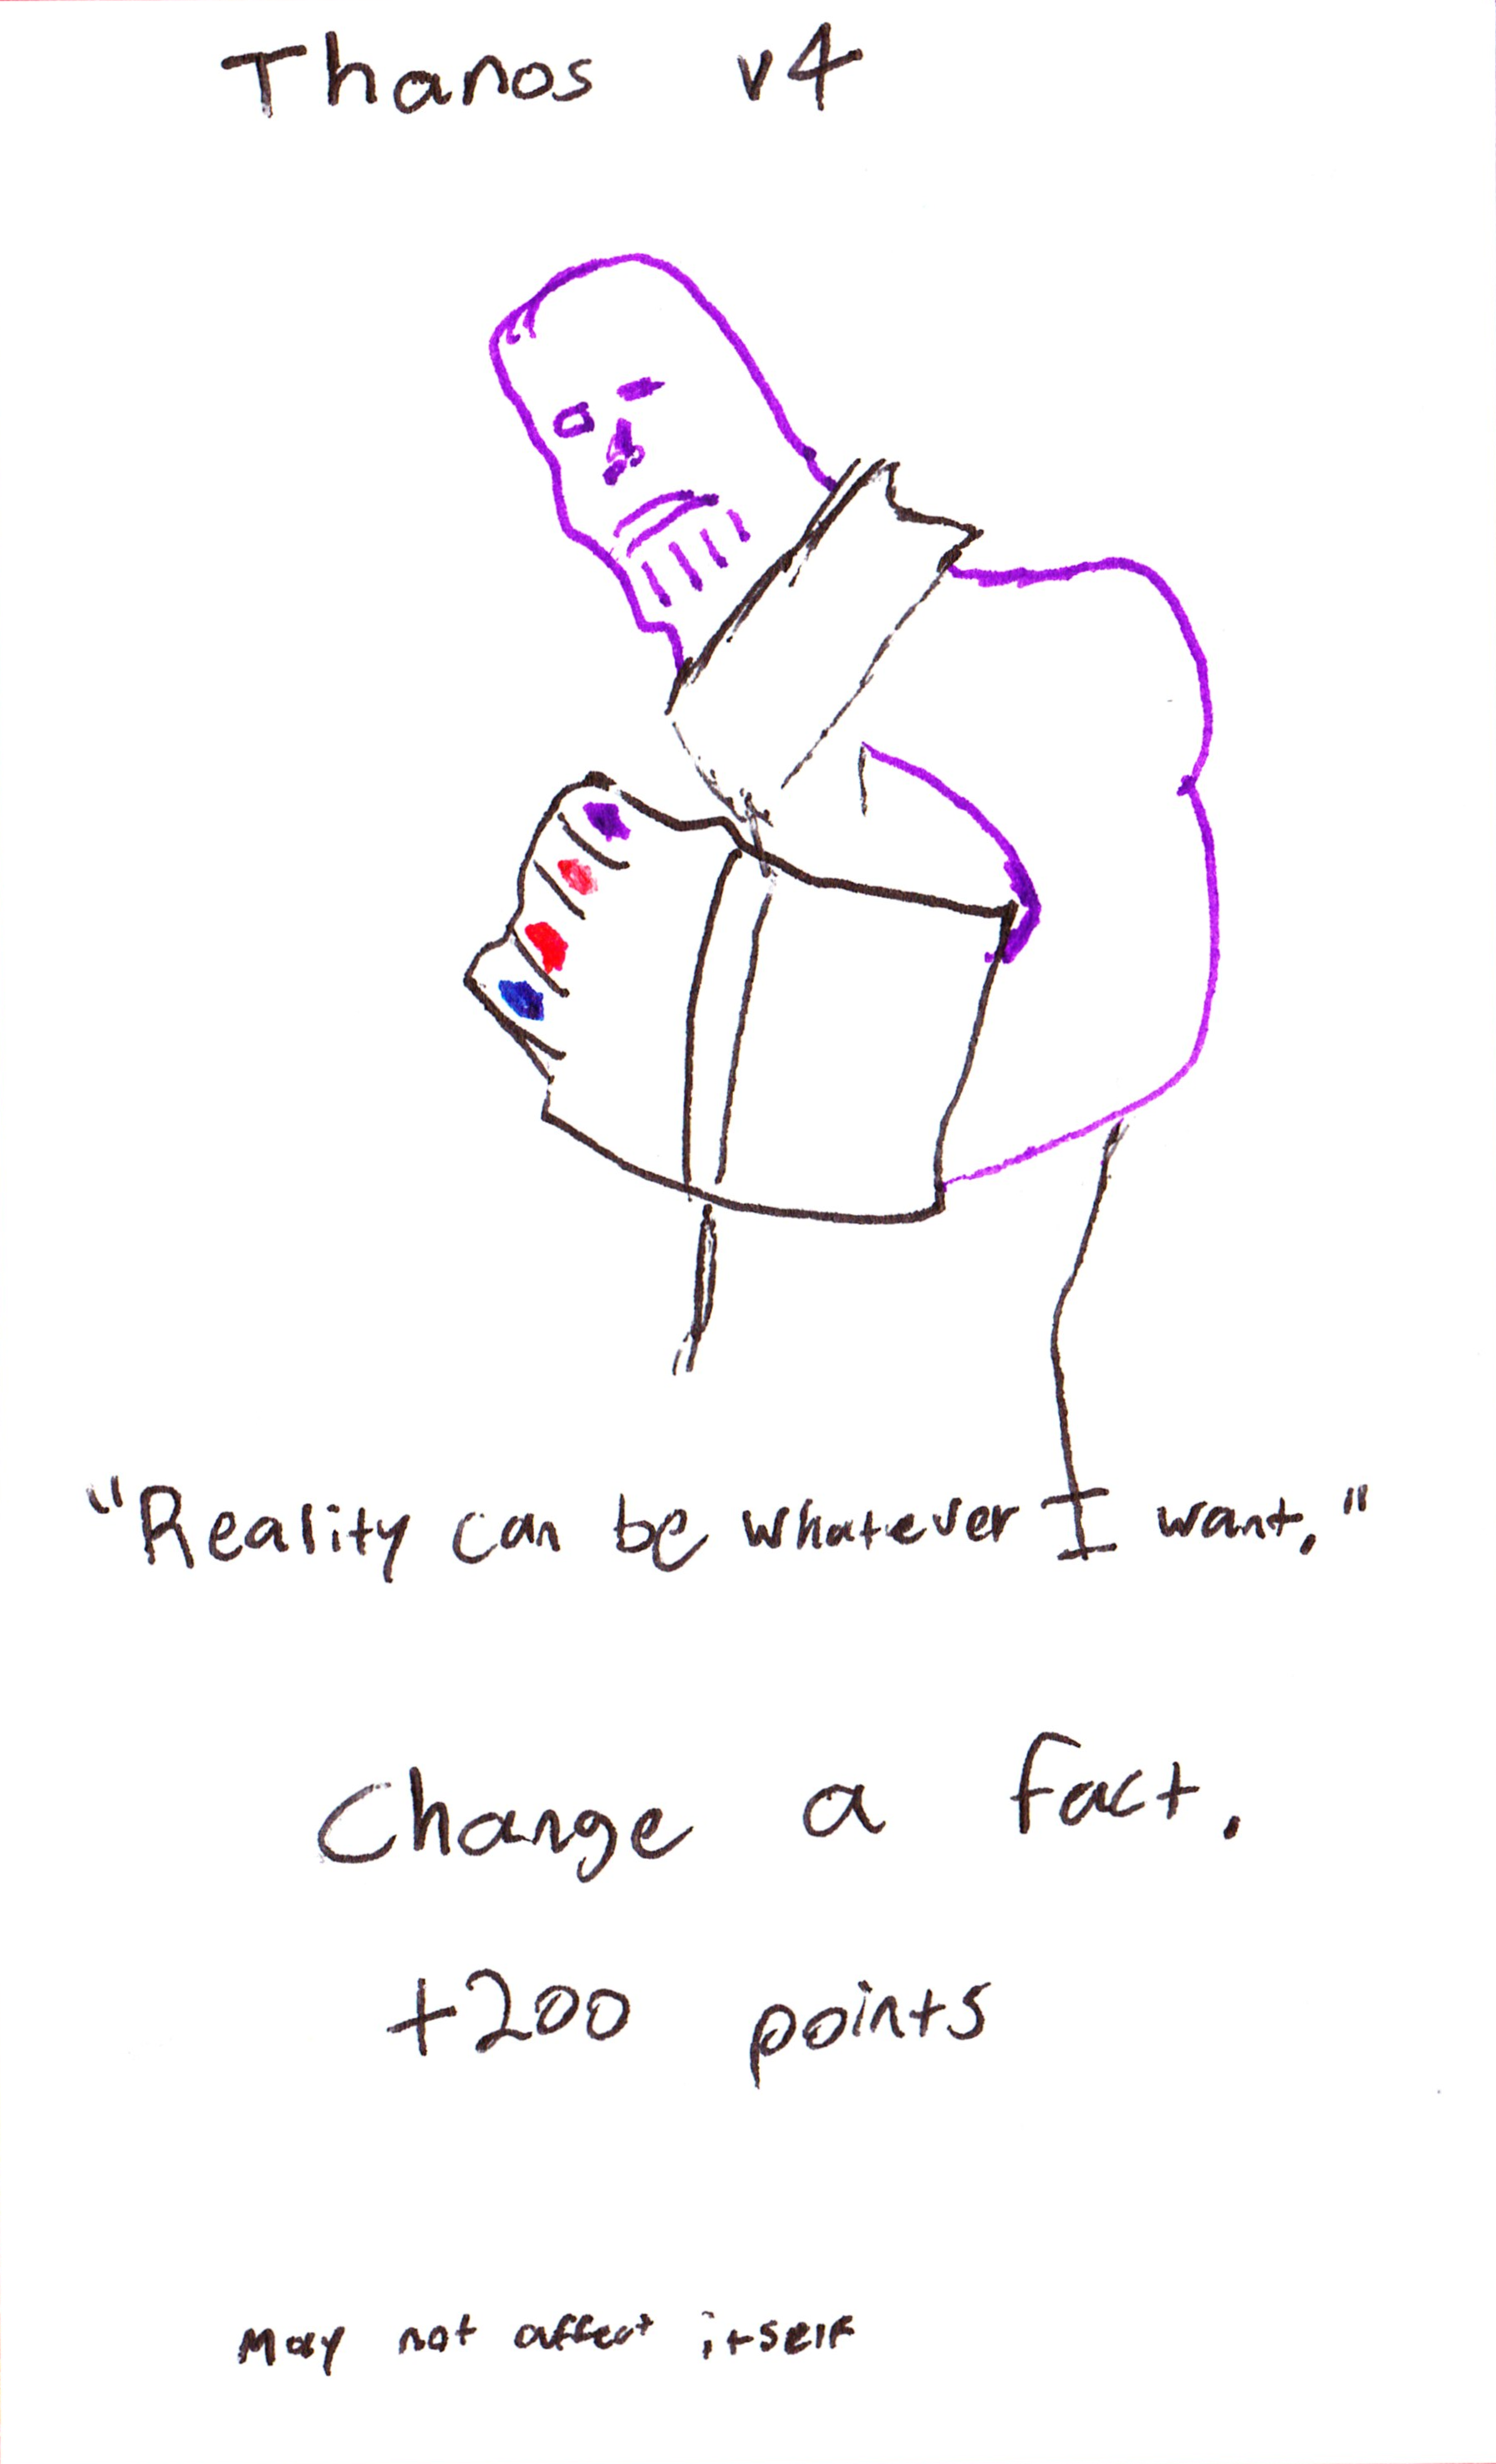 Thanos v4
"Reality can be whatever I want."
Change a fact.
+200 points
May not affect itself